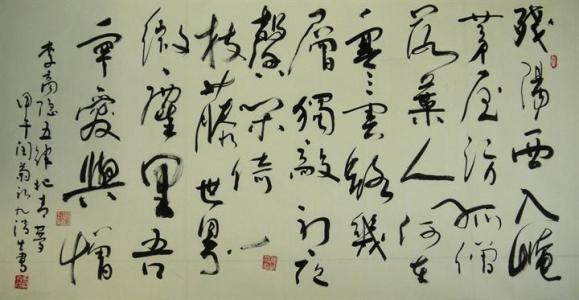 殘陽西入崦
茅屋訪孤僧
落葉人何在
寒雲路幾
層獨敲初夜
磬閑倚一
枝藤世界
微塵里吾
寧愛與憎
李商隐五律北青萝
甲午閏菊月九生書